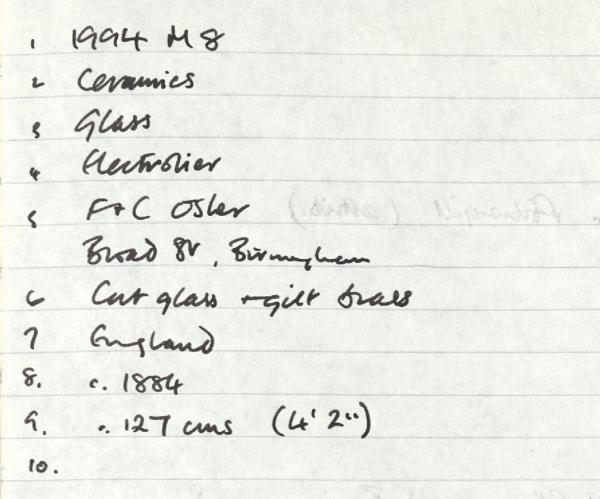 1 1994 M8
2 Ceramics
3 Glass
4 Electrolier
5 F+C Osler
Broad St, Birmingham
6 Cut glass + gilt brass
7 England
8. c. 1884
9. c. 127 cms (4' 2")
10.